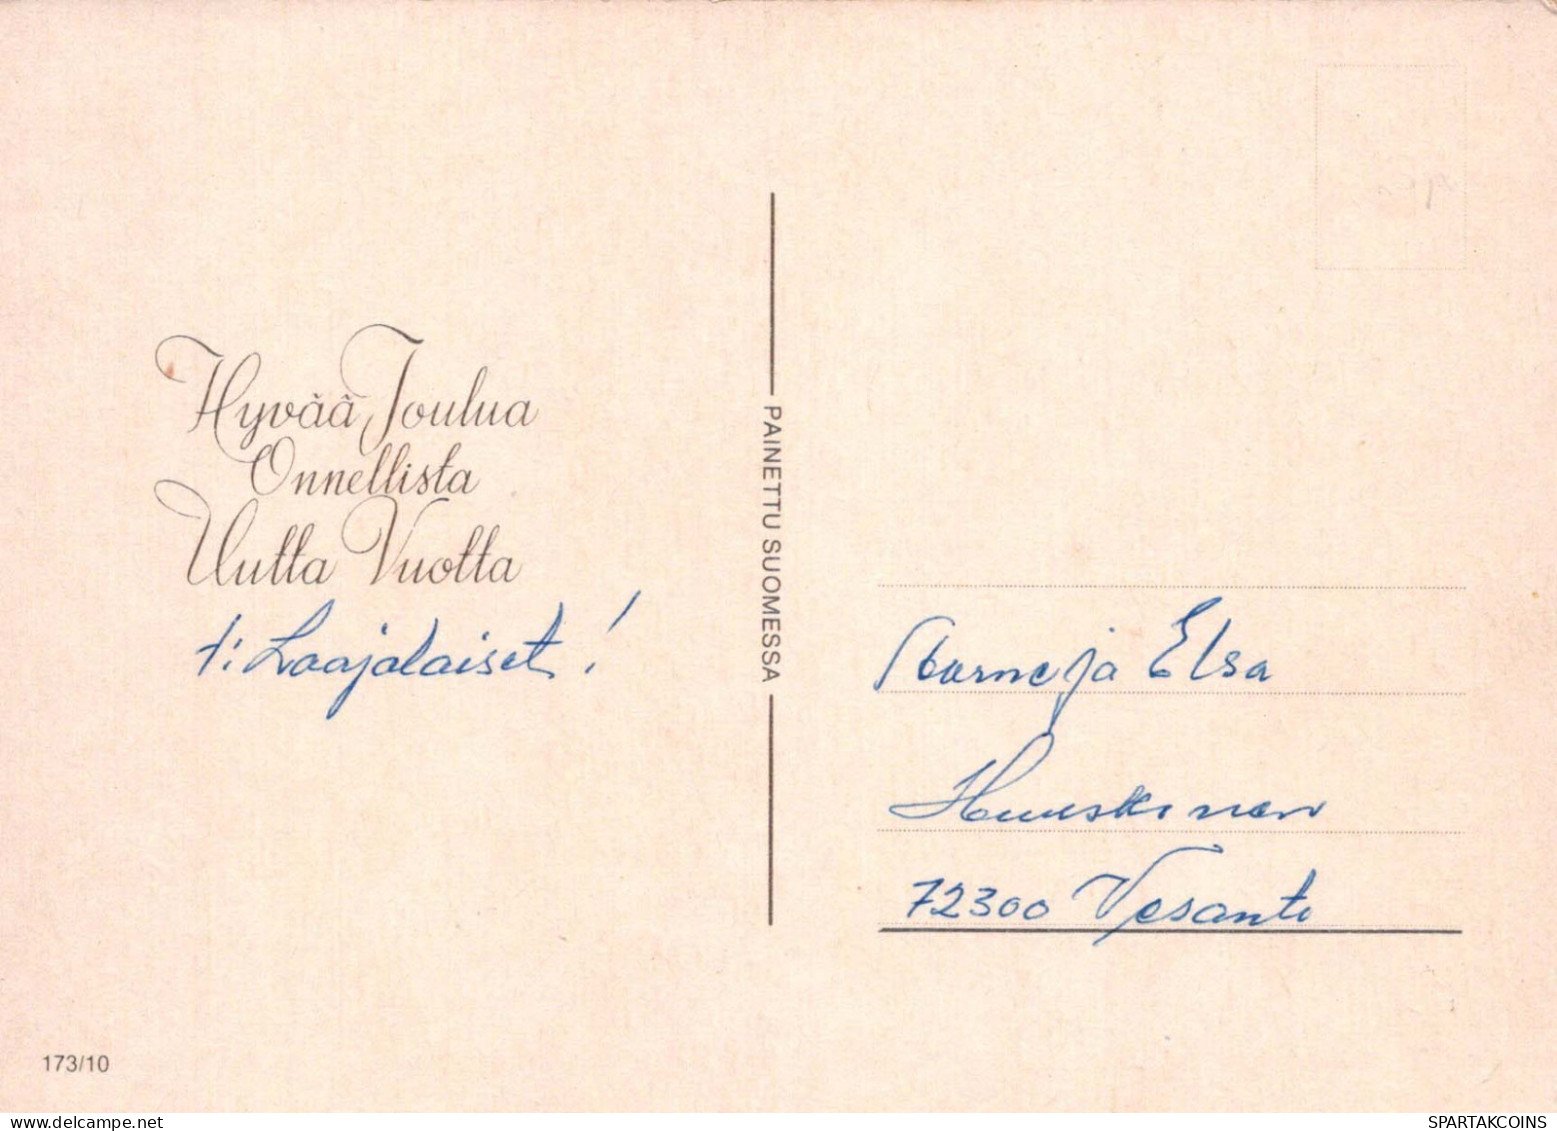 Hyvää Joulua
Onnellista
Uutta Vuotta
t: Laajalaiset!
PAINETTU SUOMESSA
ja Elsa
Huuskonen
72300 Vesanto
173/10
SPARTAKCOINS